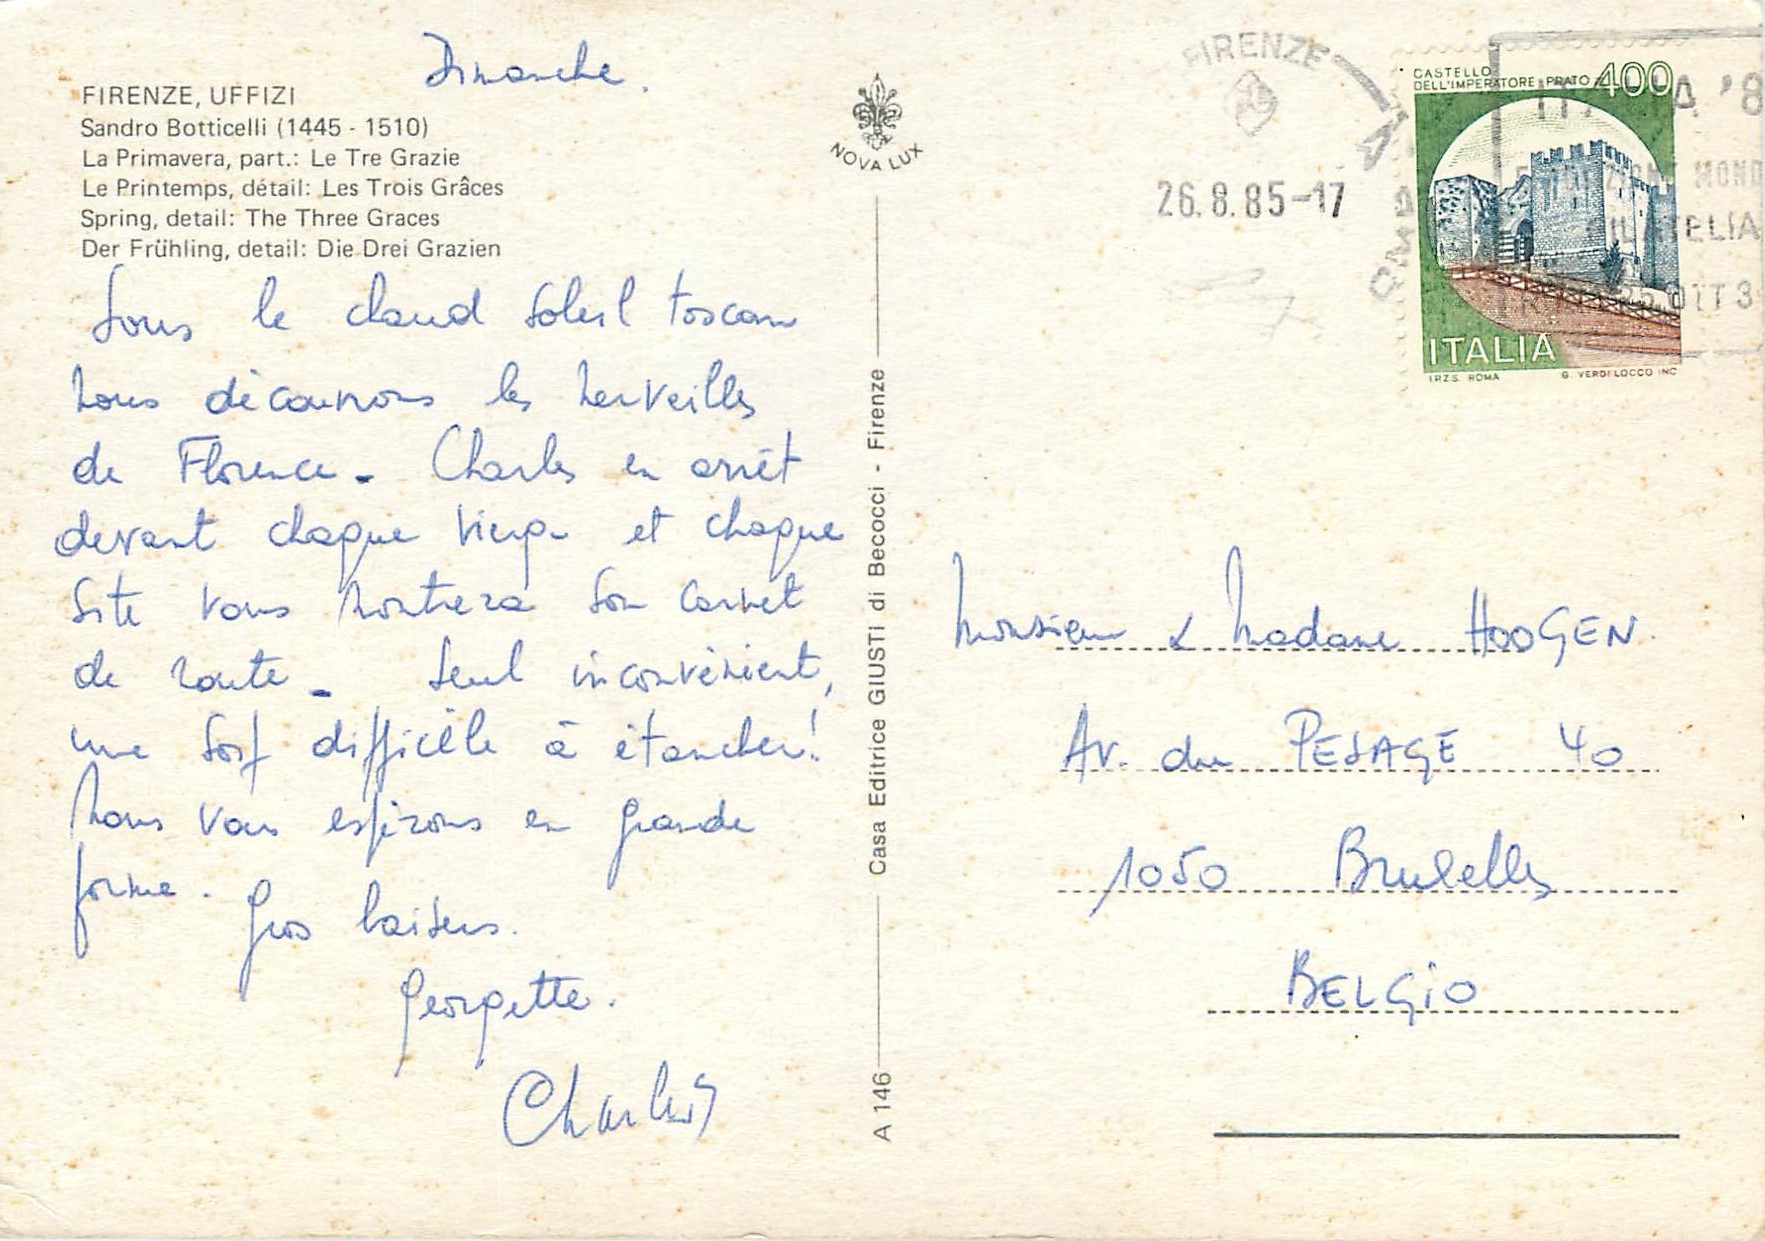 Dimanche.
FIRENZE, UFFIZI
Sandro Botticelli (1445 - 1510)
La Primavera, part.: Le Tre Grazie
Le Printemps, détail: Les Trois Grâces
Spring, detail: The Three Graces
Der Frühling, detail: Die Drei Grazien
Sous le chaud soleil toscan
nous découvrons les merveilles
de Florence. Charles en arrêt
devant chaque vierge et chaque
site vous montrera son carnet
de route. Seul inconvénient,
une soif difficile à étancher!
Nous vous espérons en grande
forme. Gros baisers.
Georgette.
Charles
NOVA LUX
Casa Editrice GIUSTI di Becocci - Firenze
A 146
FIRENZE
26.8.85-17
CASTELLO
DELL'IMPERATORE PRATO 400
ITALIA '8
MOND
FILATELIA
ITALIA
I.P.Z.S. ROMA G. VERDELOCCO INC
Monsieur & Madame HOOGEN.
Av. du PESAGE 40
1050 Bruxelles
BELGIO